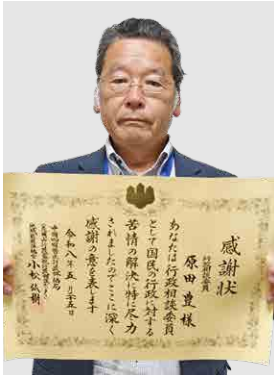 感謝状
行政相談委員
原田 豊 様
あなたは行政相談委員
として国民の行政に対する
苦情の解決に特に尽力
されましたのでここに深く
感謝の意を表します
令和八年五月二十五日
小松 弘樹